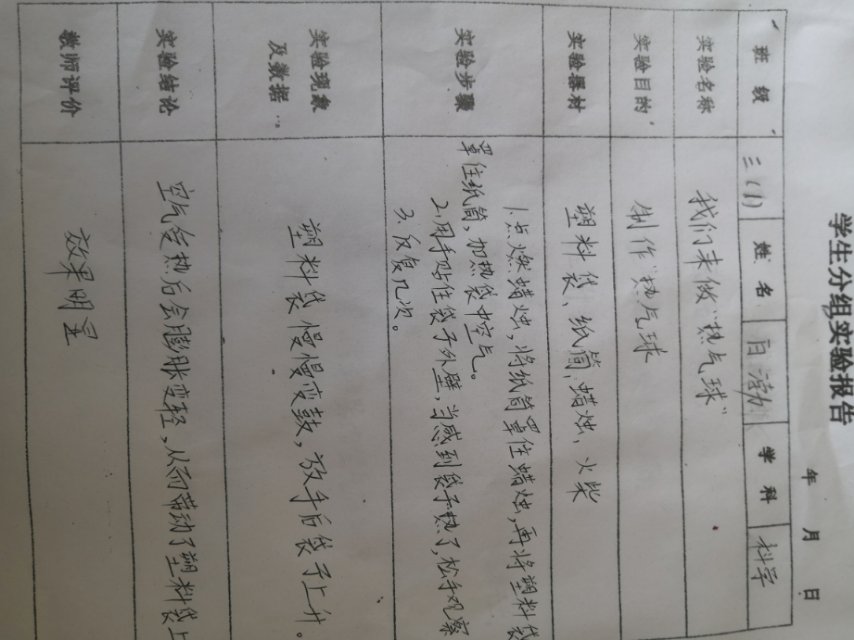 学生分组实验报告
年 月 日
班级 三(1) 姓名 白渤 学科 科学
实验名称 我们来做“热气球”
实验目的 制作“热气球”
实验器材 塑料袋、纸筒、蜡烛、火柴
实验步骤 1.点燃蜡烛,将纸筒罩住蜡烛,再将塑料袋
罩住纸筒,加热袋中空气。
2.用手贴住袋子外壁,当感到袋子热了,松手观察
3.反复几次。
实验现象
及数据 塑料袋慢慢变鼓,放手后袋子上升。
实验结论 空气受热后会膨胀变轻,从而带动了塑料袋上
教师评价 效果明显